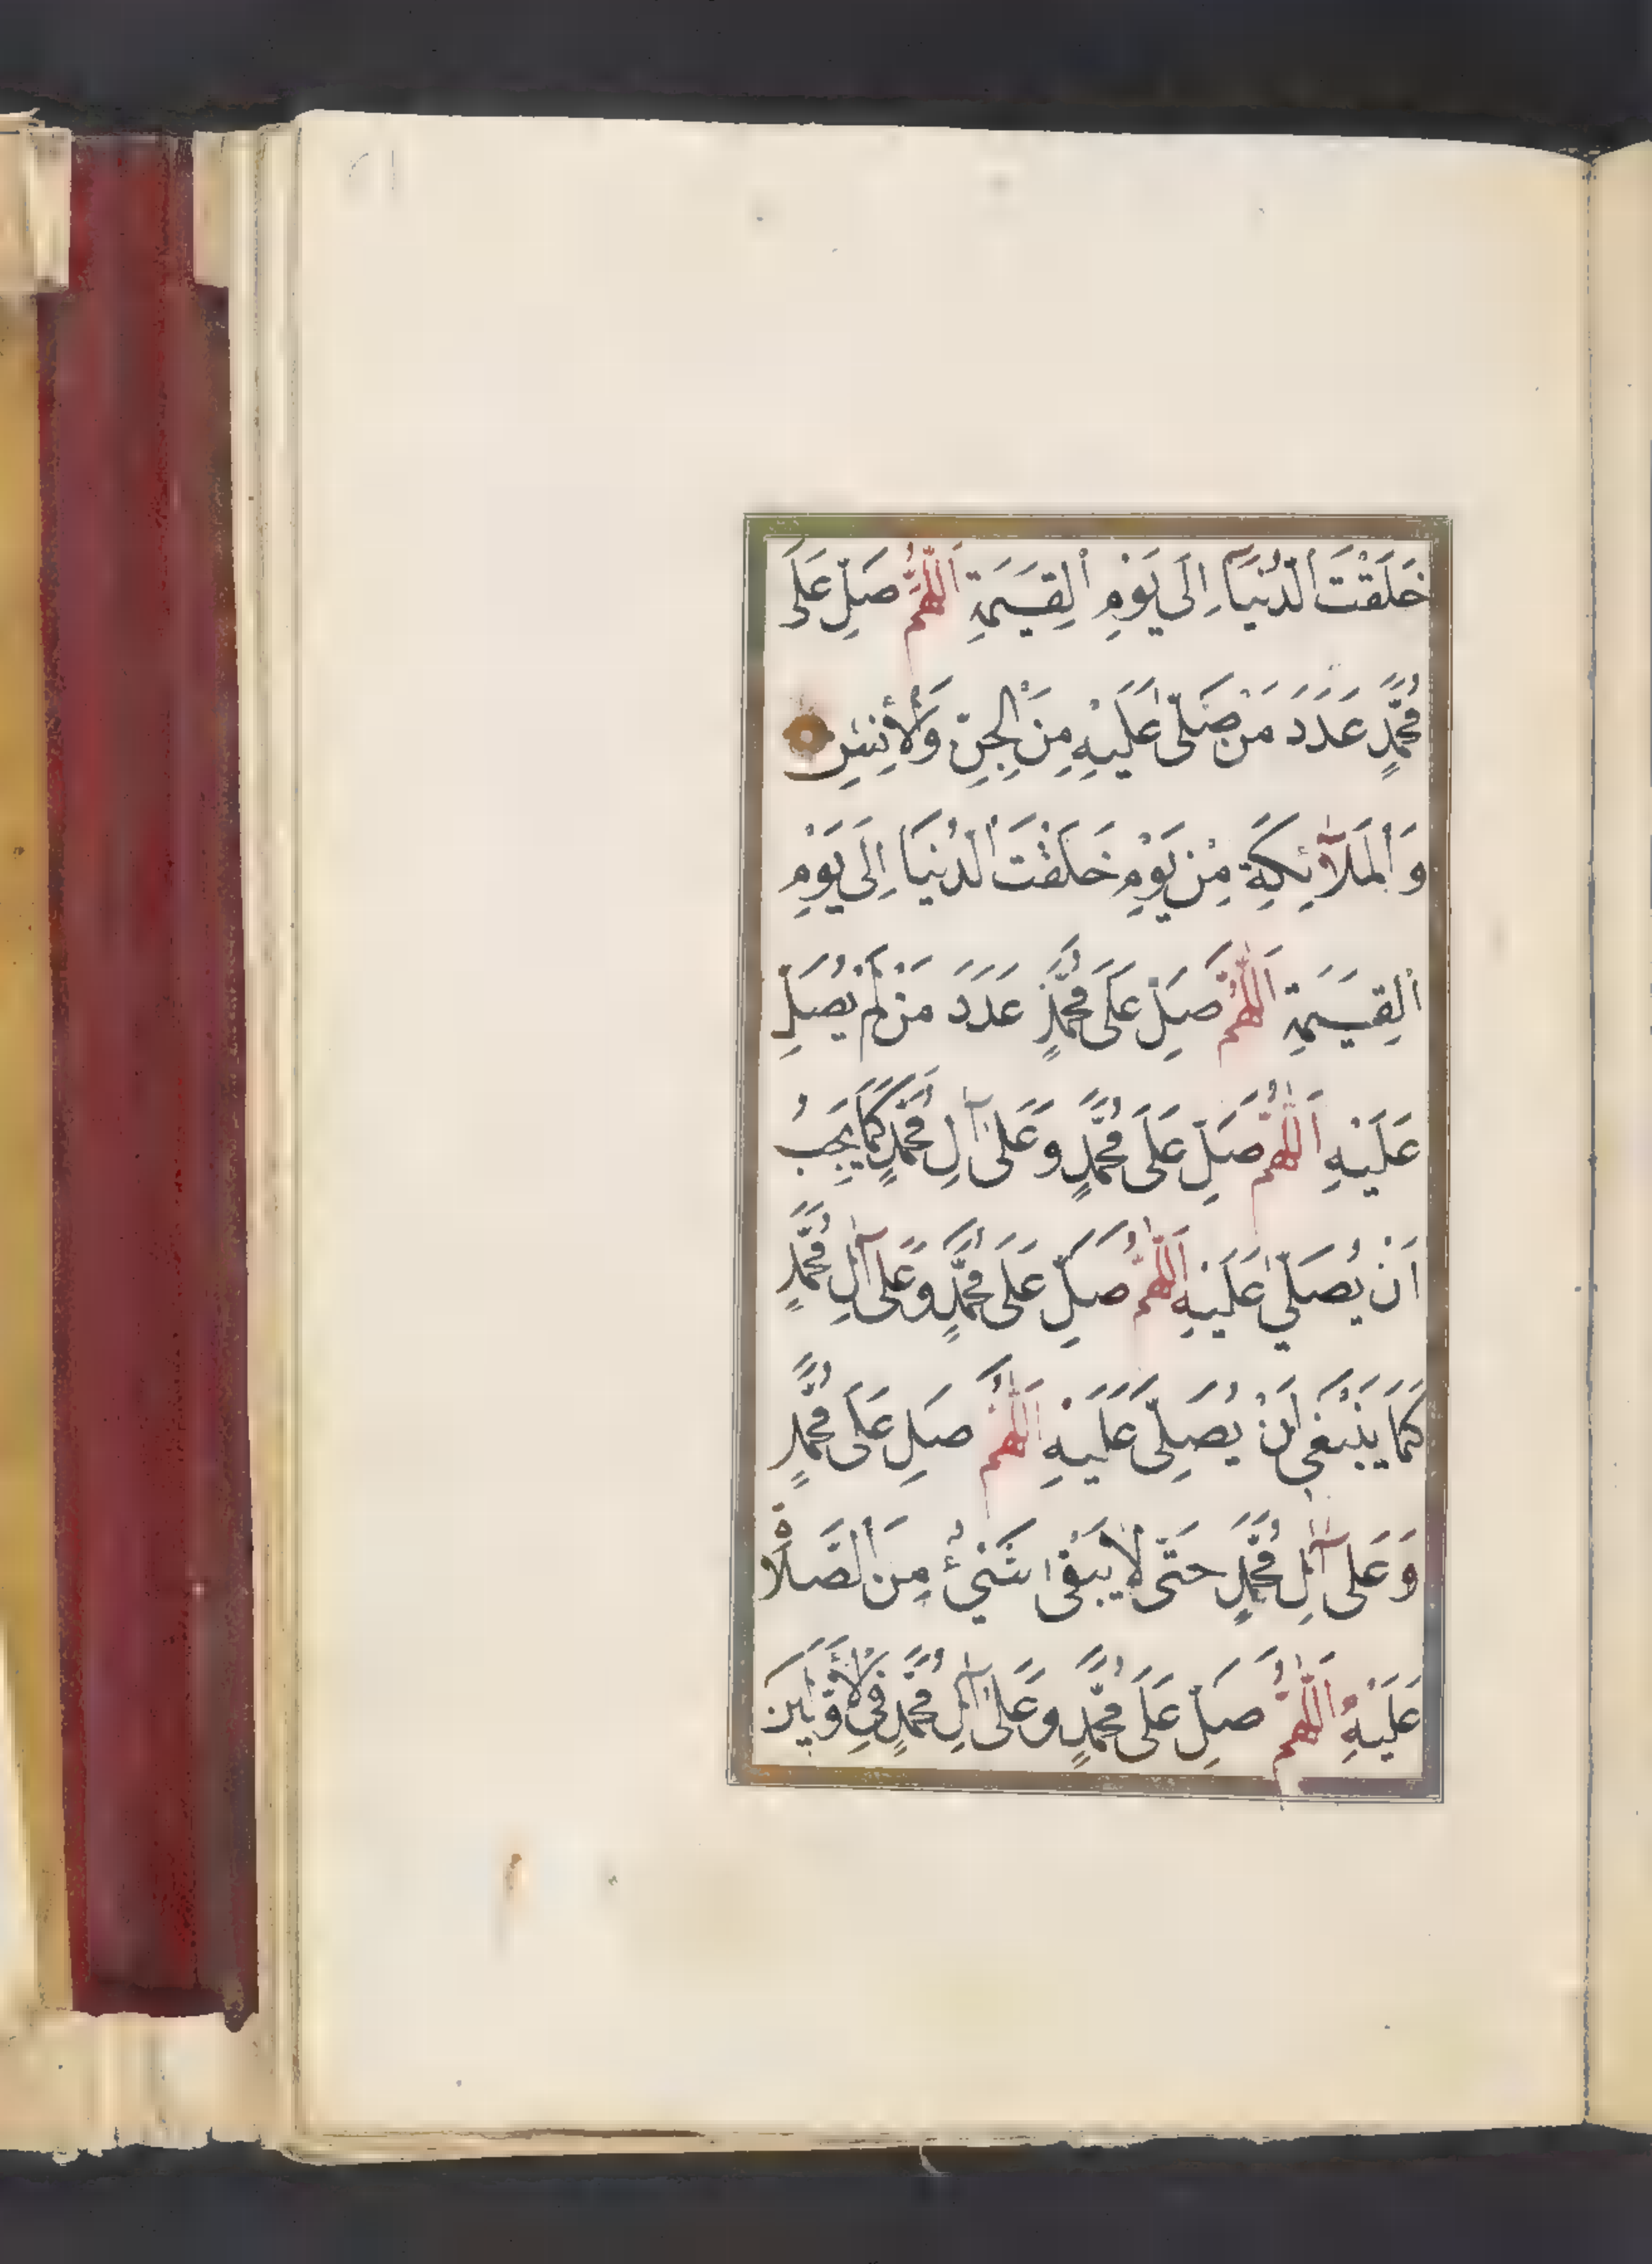 خَلَقْتَ الدُّنْيَآ اِلَى يَوْمِ الْقِيٰمَةِ اَللّٰهُمَّ صَلِّ عَلَى
مُحَمَّدٍ عَدَدَ مَنْ صَلّٰى عَلَيْهِ مِنَ الْجِنِّ وَالْأِنْسِ
وَالْمَلَآئِكَةِ مِنْ يَوْمِ خَلَقْتَ الدُّنْيَا اِلَى يَوْمِ
الْقِيٰمَةِ اَللّٰهُمَّ صَلِّ عَلَى مُحَمَّدٍ عَدَدَ مَنْ لَمْ يُصَلِّ
عَلَيْهِ اَللّٰهُمَّ صَلِّ عَلَى مُحَمَّدٍ وَعَلَى آلِ مُحَمَّدٍ كَمَا يَجِبُ
اَنْ يُصَلّٰي عَلَيْهِ اَللّٰهُمَّ صَلِّ عَلَى مُحَمَّدٍ وَعَلَى آلِ مُحَمَّدٍ
كَمَا يَنْبَغِي اَنْ يُصَلِّىَ عَلَيْهِ اَللّٰهُمَّ صَلِّ عَلَى مُحَمَّدٍ
وَعَلَى آلِ مُحَمَّدٍ حَتّٰى لَا يَبْقٰى شَيْئٌ مِنَ الصَّلَاةِ
عَلَيْهِ اَللّٰهُمَّ صَلِّ عَلَى مُحَمَّدٍ وَعَلَى آلِ مُحَمَّدٍ فِي الْأَوَّلِيْنَ